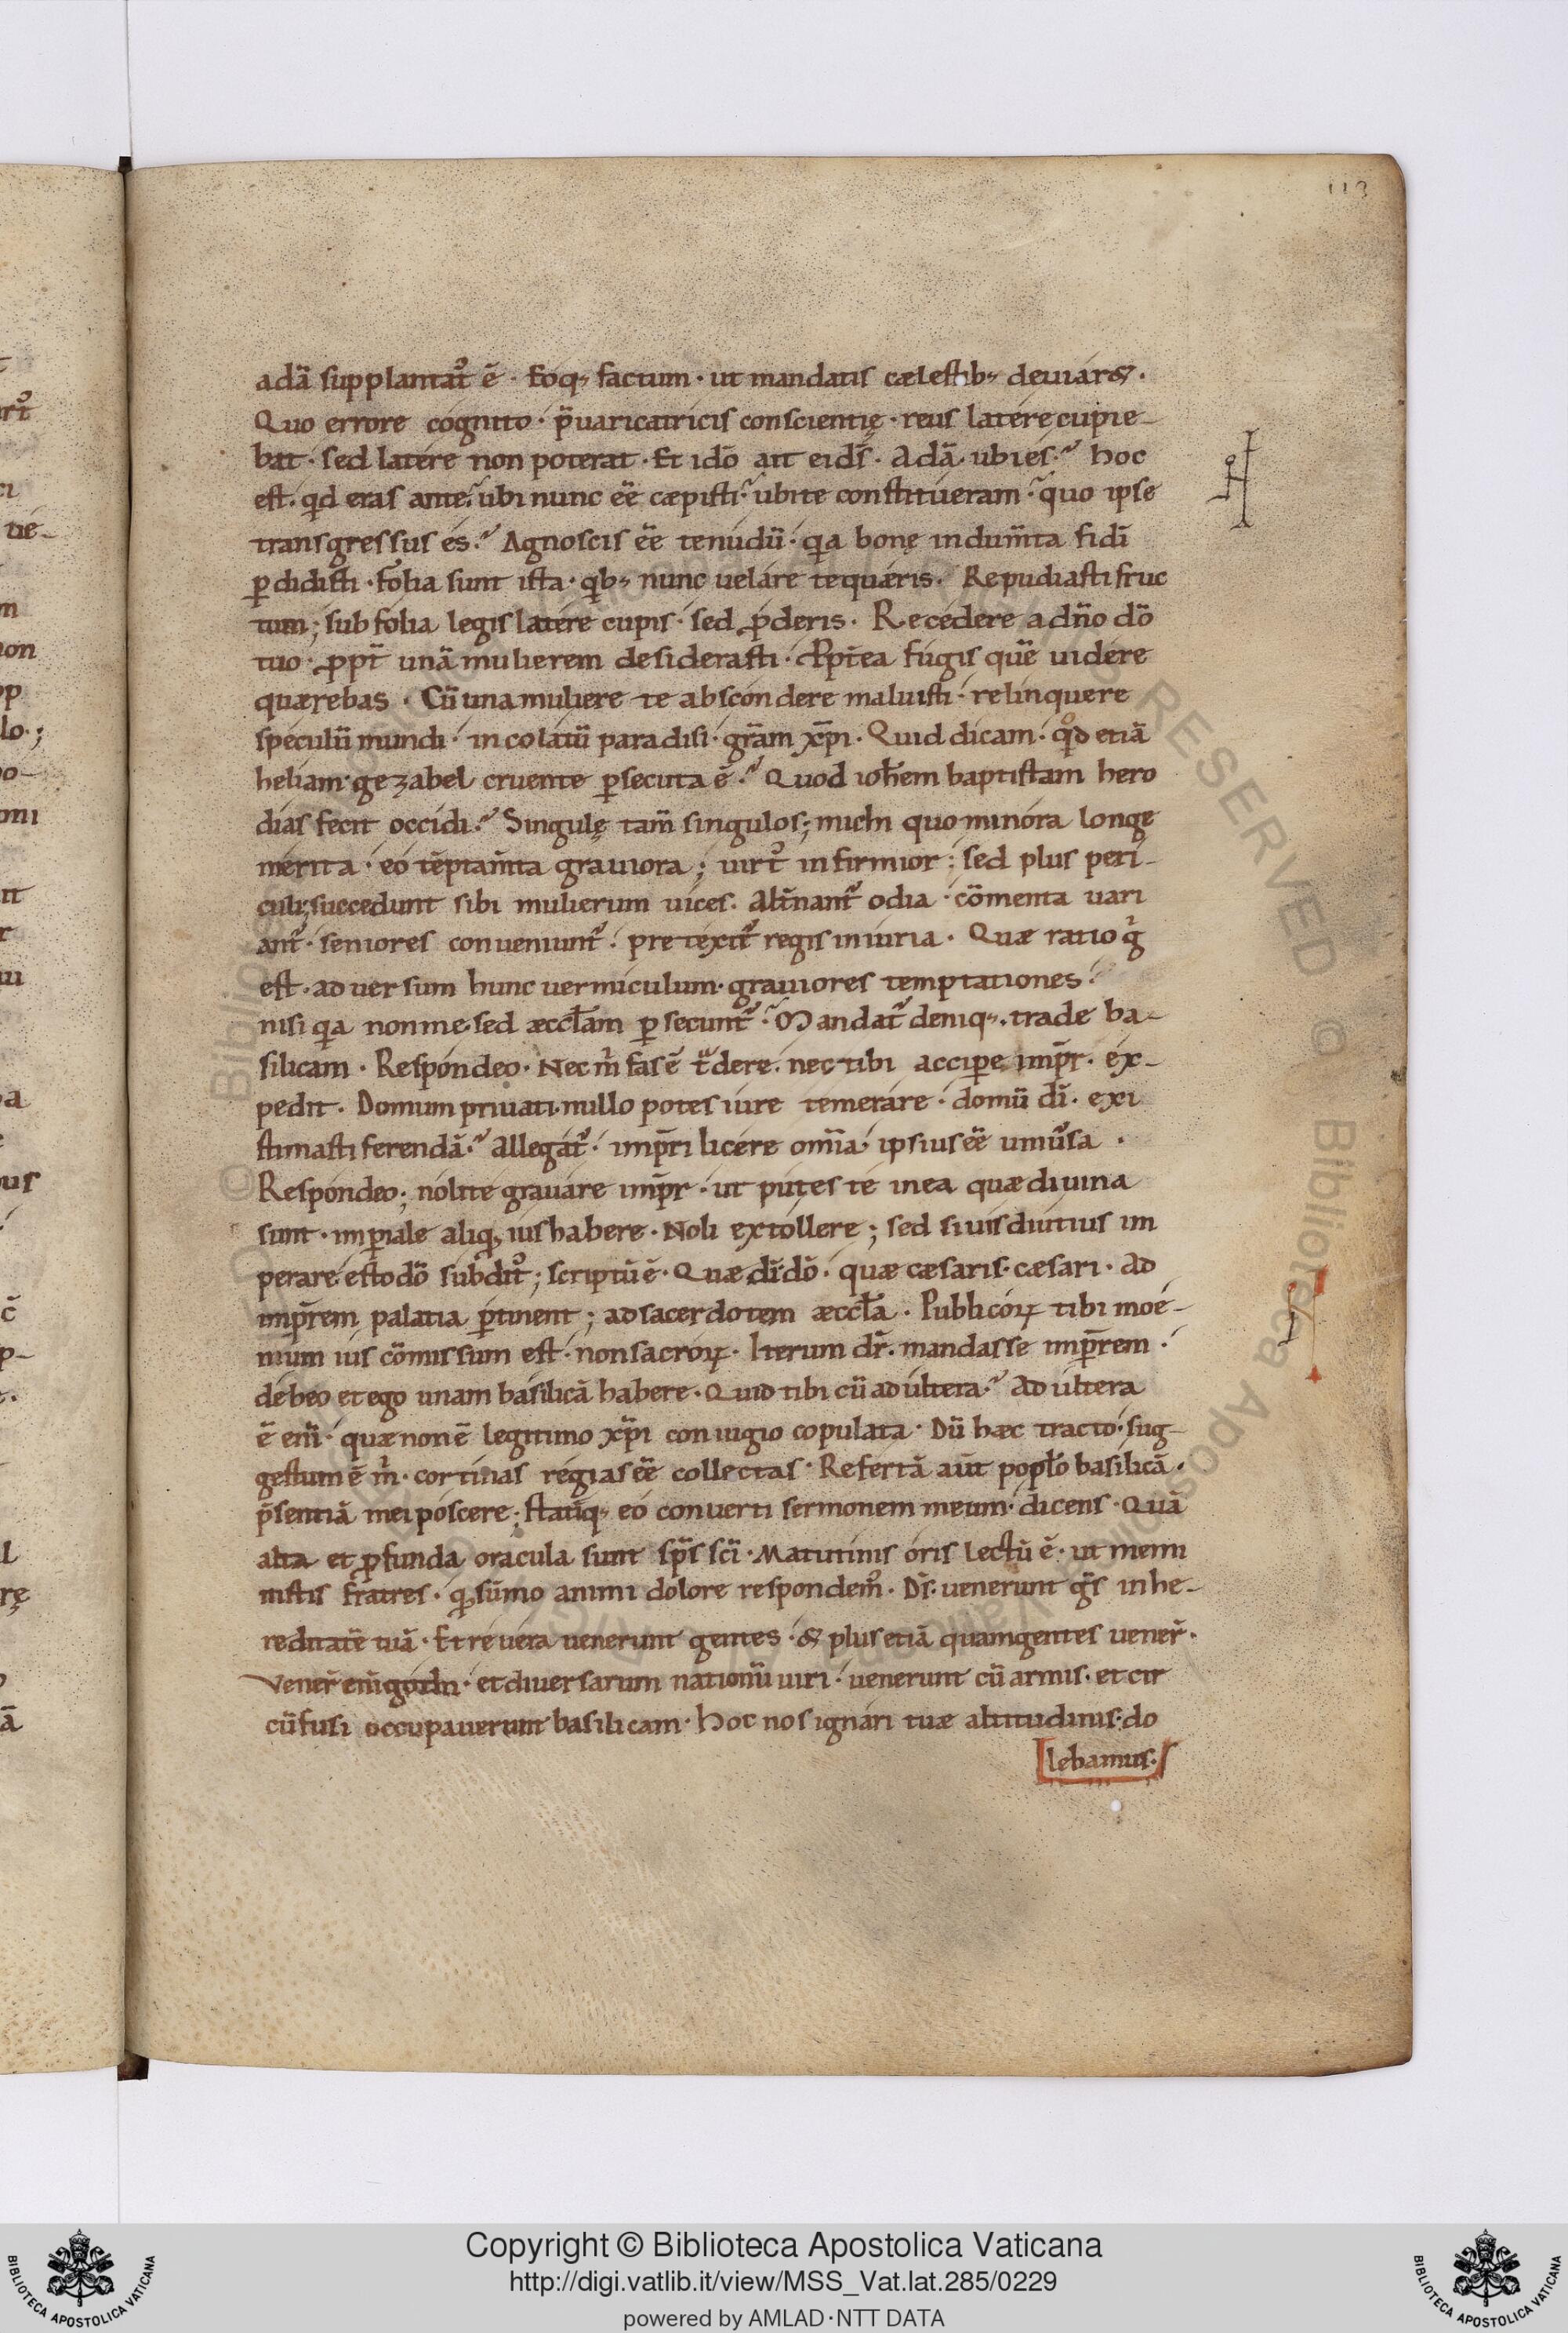 113
adã supplantat᷒ ẽ · Eoq; factum · ut mandatis cælestib; deuiar& ·
Quo errore cognito · p̃uaricatricis conscientię · reus latere cupie-
bat · sed latere non poterat · Et idõ ait ei ds̃ · Adã · ubi es? hoc
est · qd eras ante? ubi nunc eẽ cæpisti? ubi te constitueram? quo ipse
transgressus es? Agnoscis eẽ te nudũ · qia bonę indum̃ta fidi
ꝑdidisti · Folia sunt ista · qib; nunc uelare te quæris · Repudiasti fruc
tum; sub folia legis latere cupis · sed ꝓderis · Recedere a dño dõ
tuo · ꝓpt̃ unã mulierem desiderasti · Ꝓpt̃ea fugis quẽ uidere
quærebas · Cũ una muliere te abscondere maluisti · relinquere
speculũ mundi · incolatũ paradisi · grãm xp̃i · Quid dicam · qd etiã
heliam · gezabel cruente ꝑsecuta ẽ? Quod ioh̃em baptistam hero
dias fecit occidi? Singulę tam̃ singulos; michi quo minora longe
merita · eo tẽptam̃ta grauiora; uirt᷒ infirmior; sed plus peri-
culi; succedunt sibi mulierum uices · Alt̃nant᷑ odia · cõmenta uari
ant᷑ · seniores conueniunt᷑ · pretexit᷑ regis iniuria · Quæ ratio g̊
est · aduersum hunc uermiculum · grauiores temptationes?
nisi qia non me · sed æccl̃am ꝑsecunt᷑? Mandat᷑ deniq; · trade ba-
silicam · Respondeo · Nec m̊ fas ẽ t̃dere · nec tibi accipe imp̃r · ex-
pedit · Domum priuati · nullo potes iure temerare · domũ dĩ · exi
stimasti ferendã? Allegat᷑ · imp̃ri licere om̃ia · ipsius eẽ uniũsa ·
Respondeo; nolite grauare imp̃r · ut putes te in ea quæ diuina
sunt · imꝑiale aliq̃ ius habere · Noli extollere; sed si uis diutius im
perare · esto dõ subdit᷒; scriptũ ẽ · Quæ dĩ · dõ · quæ cæsaris · cæsari · Ad
imp̃rem palatia ꝑtinent; ad sacerdotem æccl̃a · Publicoꝝ tibi moe-
nium ius cõmissum est · non sacroꝝ · Iterum dr̃ · mandasse imp̃rem ·
debeo et ego unam basilicã habere · Quid tibi cũ adultera? Adultera
ẽ eni᷒ · quæ non ẽ legitimo xp̃i coniugio copulata · Dũ hæc tracto · sug-
gestum ẽ m̊ · cortinas regias eẽ collectas · Refertã aũt popl̃o basilicã ·
p̃sentiã mei poscere; statiq; eo conuerti sermonem meum · dicens · Quã
alta et ꝓfunda oracula sunt sp̃s sc̃i · Matutinis oris lectũ ẽ · ut memi
nistis fratres · q̃ sũmo animi dolore respondem᷒ · Ds̃ · uenerunt g̃s in he-
reditatẽ tuã · Et reuera uenerunt gentes · & plus etiã quam gentes uener̃ ·
Vener̃ eni᷒ gothi · et diuersarum nationũ uiri · uenerunt cũ armis · et cir
cũfusi occupauerunt basilicam · Hoc nos ignari tuæ altitudinis · do
lebamus ·
Copyright © Biblioteca Apostolica Vaticana
http://digi.vatlib.it/view/MSS_Vat.lat.285/0229
powered by AMLAD·NTT DATA